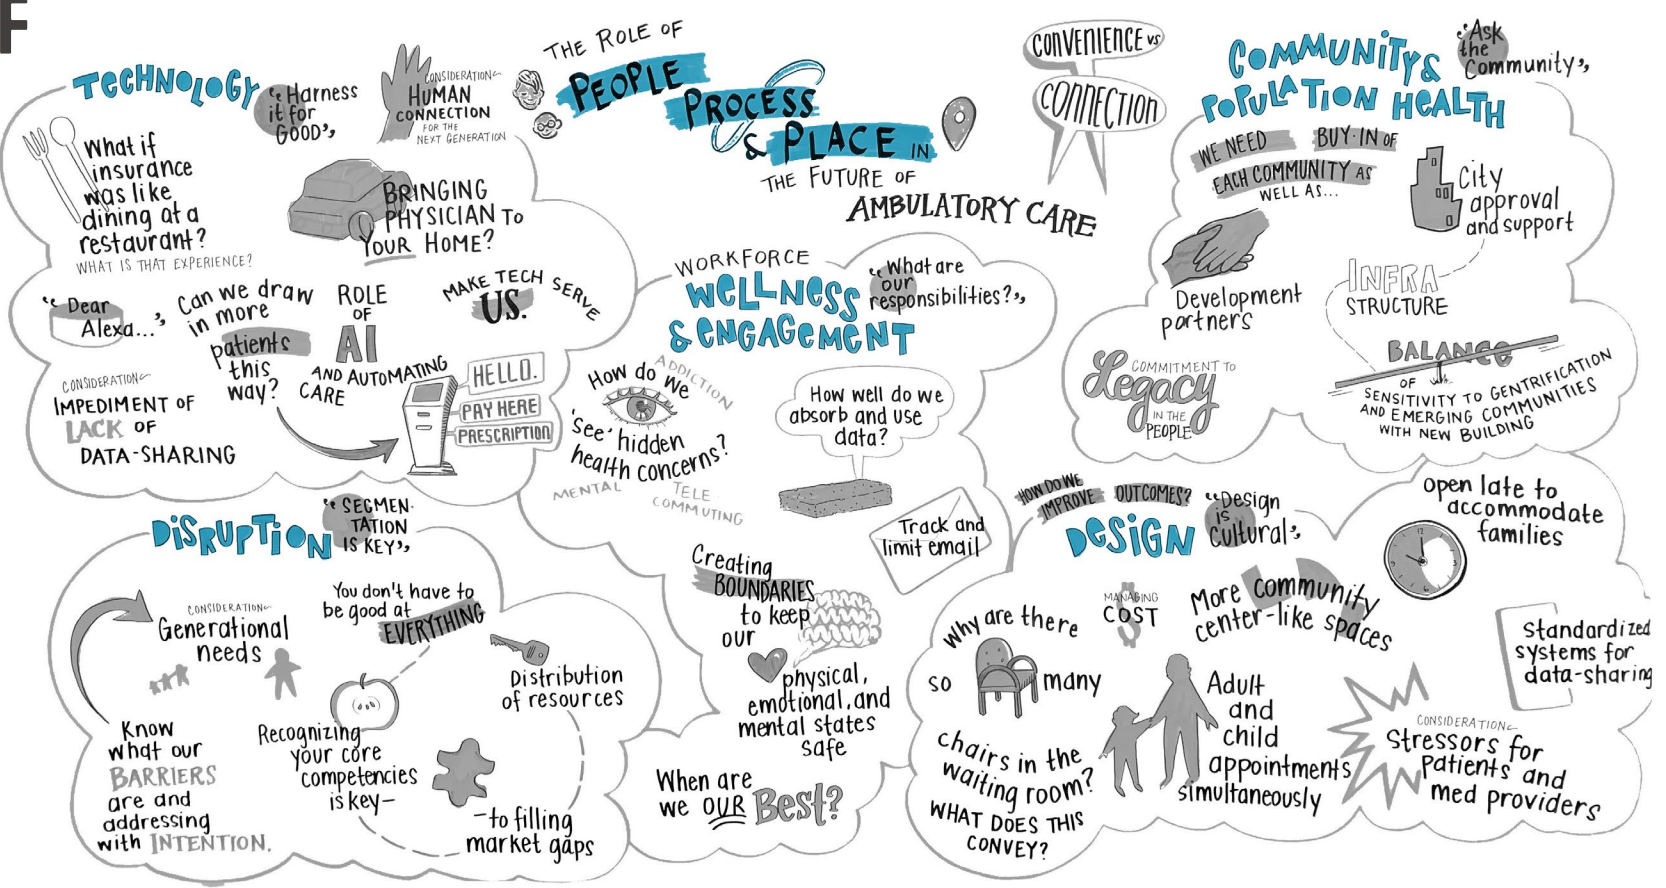 F
THE ROLE OF
PEOPLE
PROCESS
& PLACE IN
THE FUTURE OF
AMBULATORY CARE
CONVENIENCE vs
CONNECTION
TECHNOLOGY
"Harness
it for
GOOD",
CONSIDERATION
HUMAN
CONNECTION
FOR THE
NEXT GENERATION
What if
insurance
was like
dining at a
restaurant?
WHAT IS THAT EXPERIENCE?
BRINGING
PHYSICIAN TO
YOUR HOME?
"Dear
Alexa...",
Can we draw
in more
patients
this
way?
ROLE
OF
AI
AND AUTOMATING
CARE
MAKE TECH SERVE
US.
HELLO.
PAY HERE
PRESCRIPTION
CONSIDERATION
IMPEDIMENT OF
LACK OF
DATA-SHARING
WORKFORCE
WELLNESS
& ENGAGEMENT
"What are
our
responsibilities?",
ADDICTION
How do we
'see' hidden
health concerns?
MENTAL
TELE
COMMUTING
How well do we
absorb and use
data?
Track and
limit email
Creating
BOUNDARIES
to keep
our
physical,
emotional, and
mental states
safe
When are
we OUR Best?
COMMUNITY &
POPULATION HEALTH
"Ask
the
Community",
WE NEED BUY-IN OF
EACH COMMUNITY AS
WELL AS...
City
approval
and support
Development
partners
INFRA
STRUCTURE
COMMITMENT TO
Legacy
IN THE
PEOPLE
BALANCE
OF
SENSITIVITY TO GENTRIFICATION
AND EMERGING COMMUNITIES
WITH NEW BUILDING
DISRUPTION
"SEGMEN-
TATION
IS KEY",
CONSIDERATION
Generational
needs
You don't have to
be good at
EVERYTHING
Distribution
of resources
Know
what our
BARRIERS
are and
addressing
with INTENTION.
Recognizing
your core
competencies
is key-
-to filling
market gaps
HOW DO WE
IMPROVE OUTCOMES?
DESIGN
"Design
is
cultural",
open late to
accommodate
families
Why are there
so many
chairs in the
waiting room?
WHAT DOES THIS
CONVEY?
MANAGING
COST
More community
center-like spaces
Adult
and
child
appointments
simultaneously
Standardized
systems for
data-sharing
CONSIDERATION
Stressors for
patients and
med providers